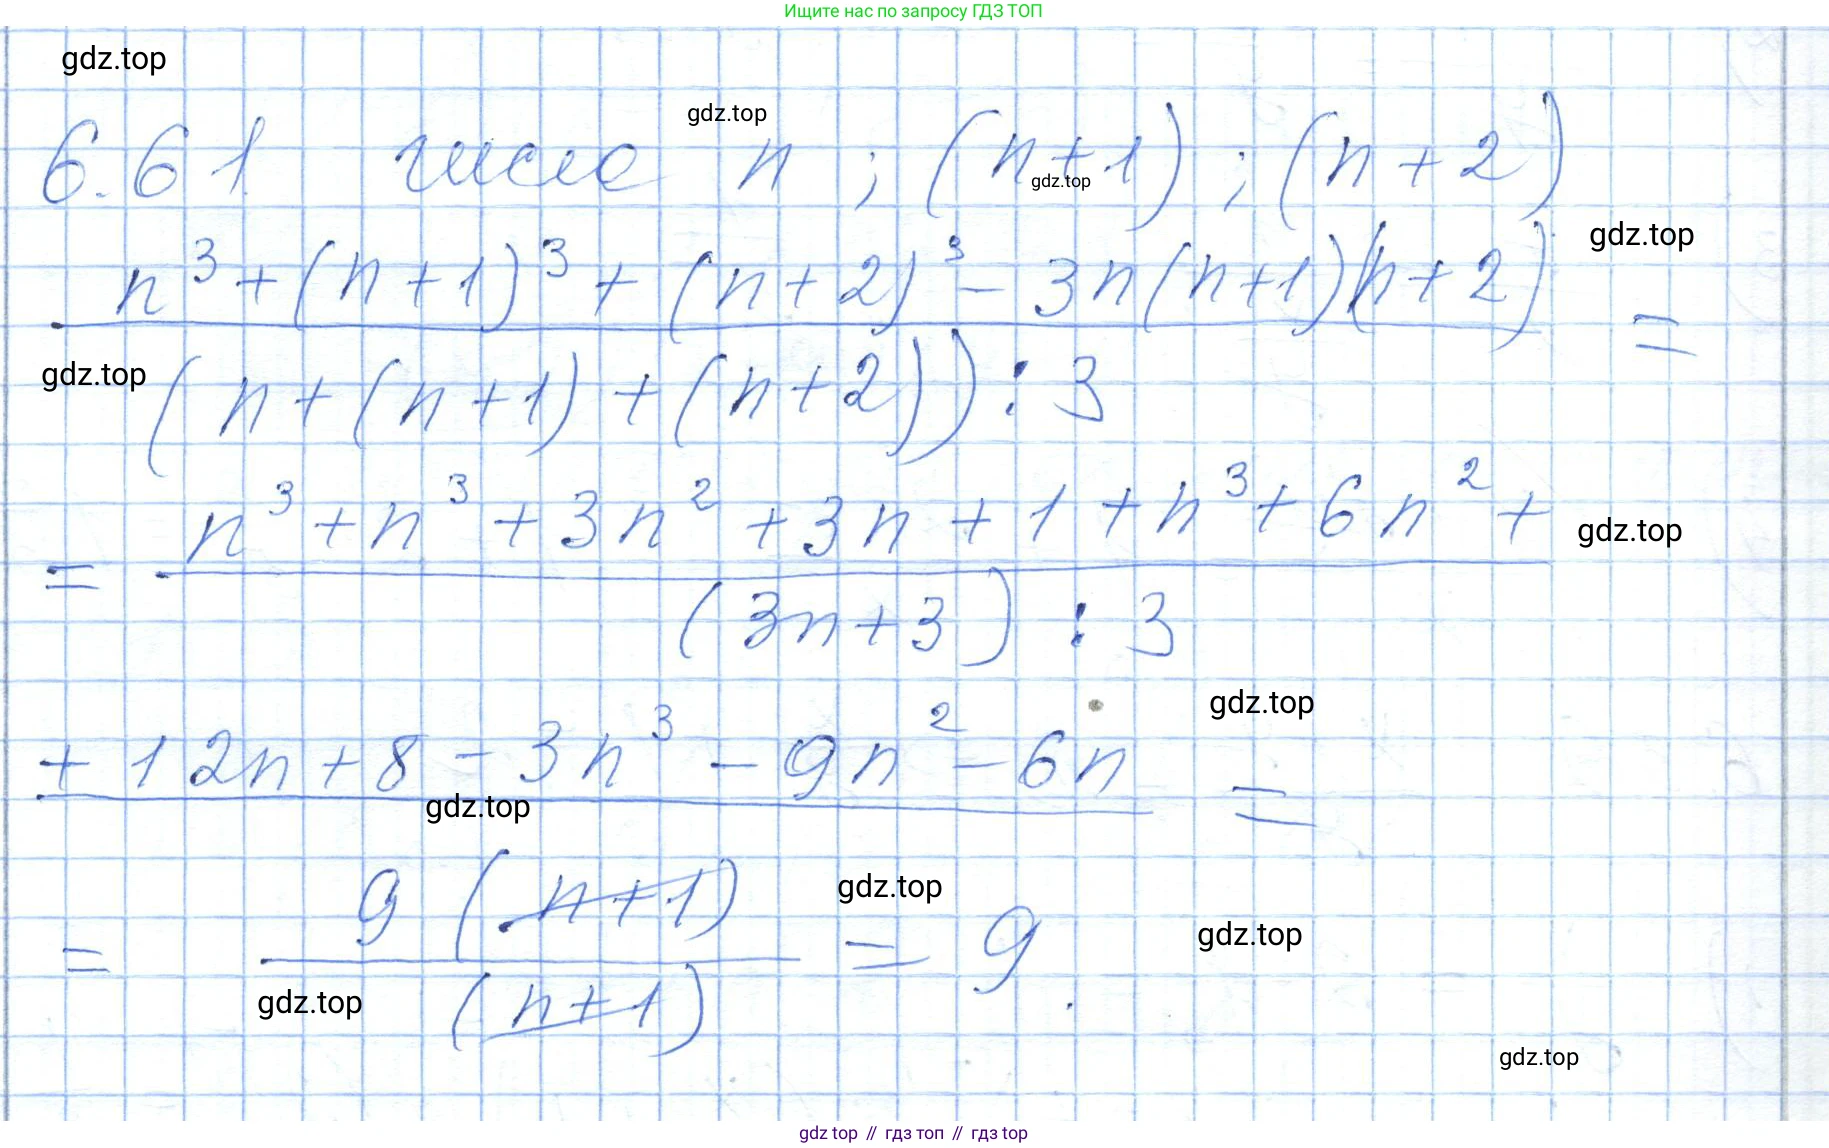 Ищите нас по запросу ГДЗ ТОП
gdz.top
gdz.top
6.61 число n ; (n+1) ; (n+2)
gdz.top
gdz.top
n³+(n+1)³+(n+2)³-3n(n+1)(n+2)
=
gdz.top
(n+(n+1)+(n+2)):3
n³+n³+3n²+3n+1+n³+6n²+
gdz.top
=
(3n+3):3
gdz.top
+12n+8-3n³-9n²-6n =
gdz.top
9(n+1)
gdz.top
= = 9.
gdz.top
gdz.top
(n+1)
gdz.top
gdz.top // гдз топ // гдз top